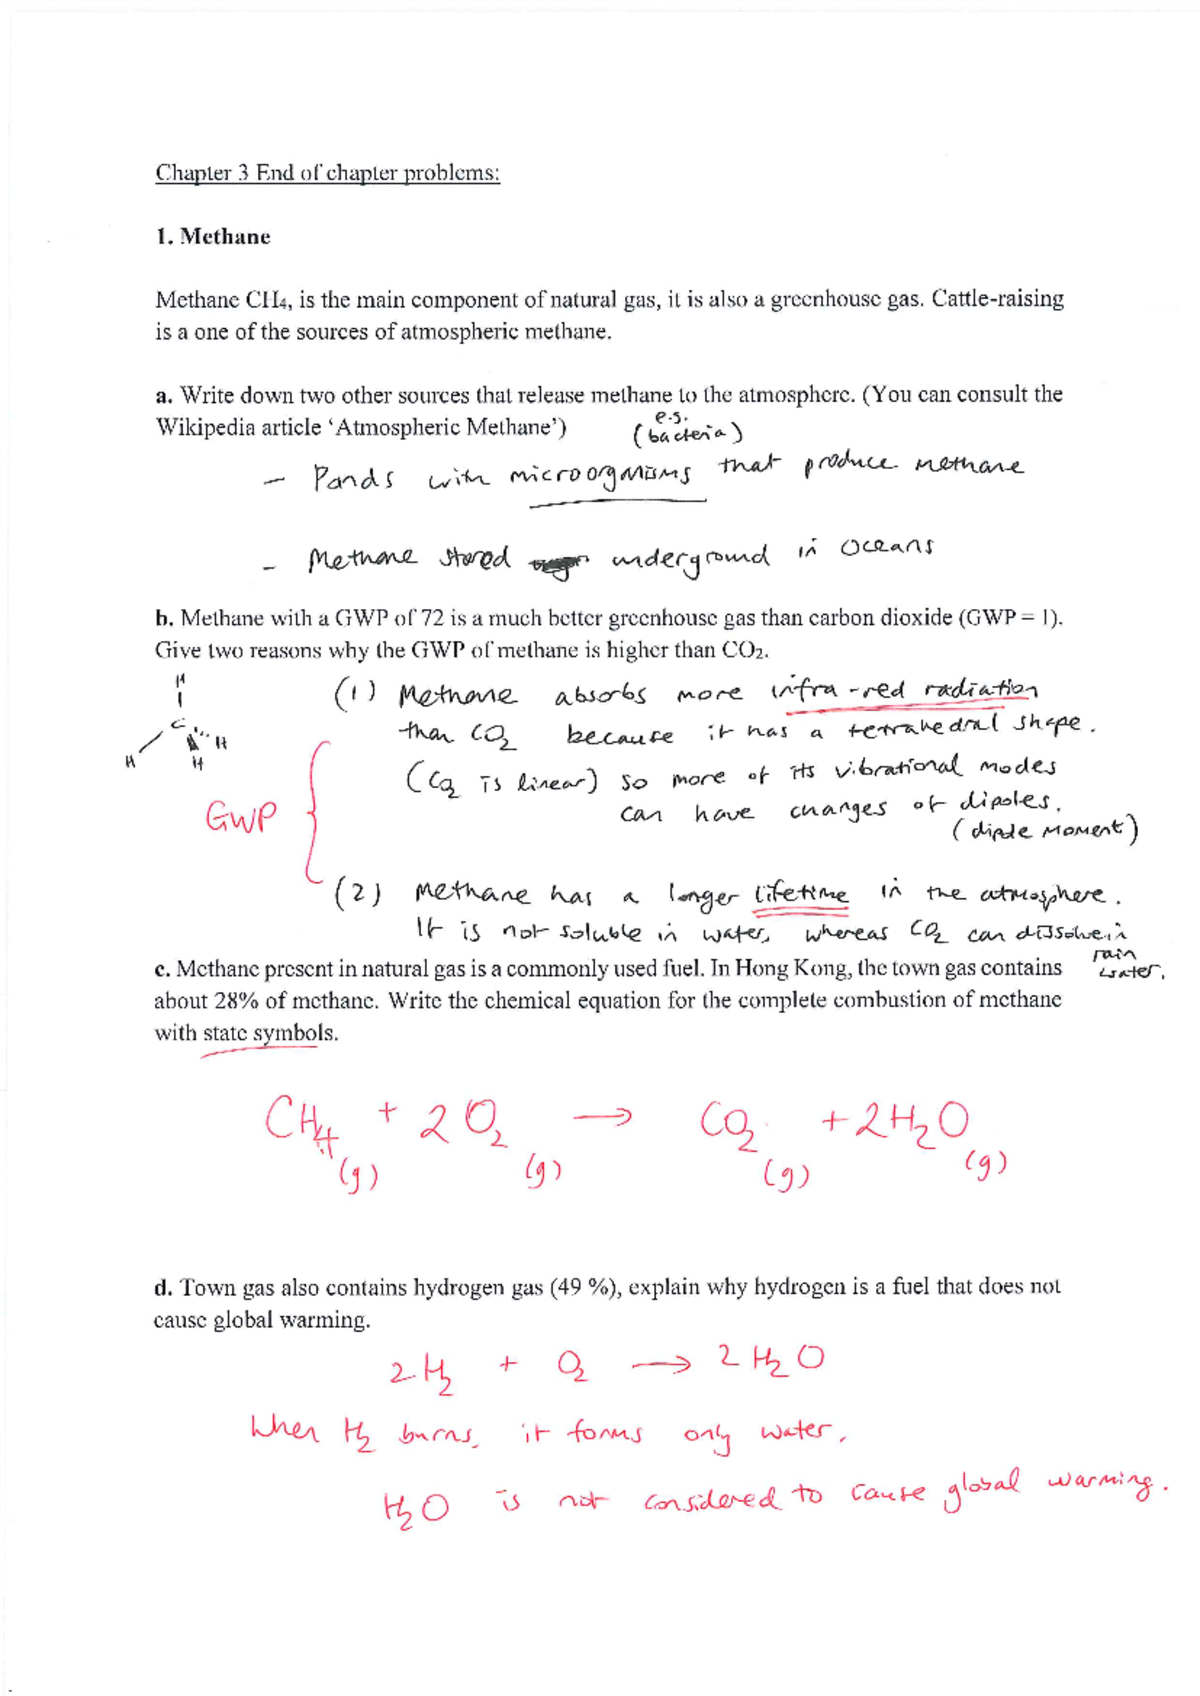 Chapter 3 End of chapter problems:
1. Methane
Methane CH₄, is the main component of natural gas, it is also a greenhouse gas. Cattle-raising
is a one of the sources of atmospheric methane.
a. Write down two other sources that release methane to the atmosphere. (You can consult the
Wikipedia article ‘Atmospheric Methane’)
e.g.
(bacteria)
- Ponds with microorganisms that produce methane
- Methane stored underground in oceans
b. Methane with a GWP of 72 is a much better greenhouse gas than carbon dioxide (GWP = 1).
Give two reasons why the GWP of methane is higher than CO₂.
H
C
H H
H
GWP
(1) Methane absorbs more infra-red radiation
than CO₂ because it has a tetrahedral shape.
(CO₂ is linear) so more of its vibrational modes
can have changes of dipoles.
(dipole moment)
(2) Methane has a longer lifetime in the atmosphere.
It is not soluble in water, whereas CO₂ can dissolve in
rain
water.
c. Methane present in natural gas is a commonly used fuel. In Hong Kong, the town gas contains
about 28% of methane. Write the chemical equation for the complete combustion of methane
with state symbols.
CH₄ + 2O₂ → CO₂ + 2H₂O
(g) (g) (g) (g)
d. Town gas also contains hydrogen gas (49 %), explain why hydrogen is a fuel that does not
cause global warming.
2H₂ + O₂ → 2H₂O
When H₂ burns, it forms only water.
H₂O is not considered to cause global warming.